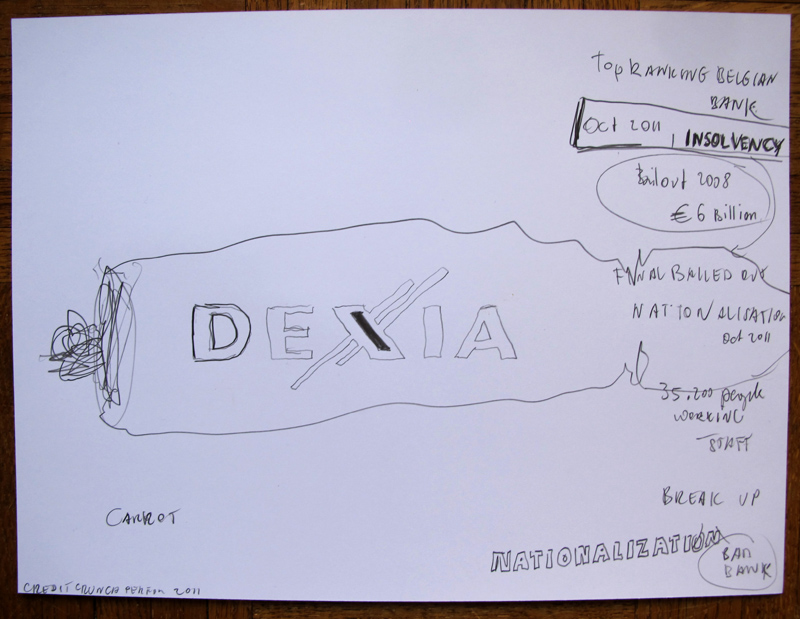 TOP RANKING BELGIAN
BANK
OCT 2011 INSOLVENCY
Bailout 2008
€ 6 Billion
FINAL BAILED OUT
NATIONALISATION
Oct 2011
DEXIA
35.200 people
WORKING
STAFF
CARROT
BREAK UP
NATIONALIZATION
BAD
BANK
CREDIT CRUNCH PERFOR 2011